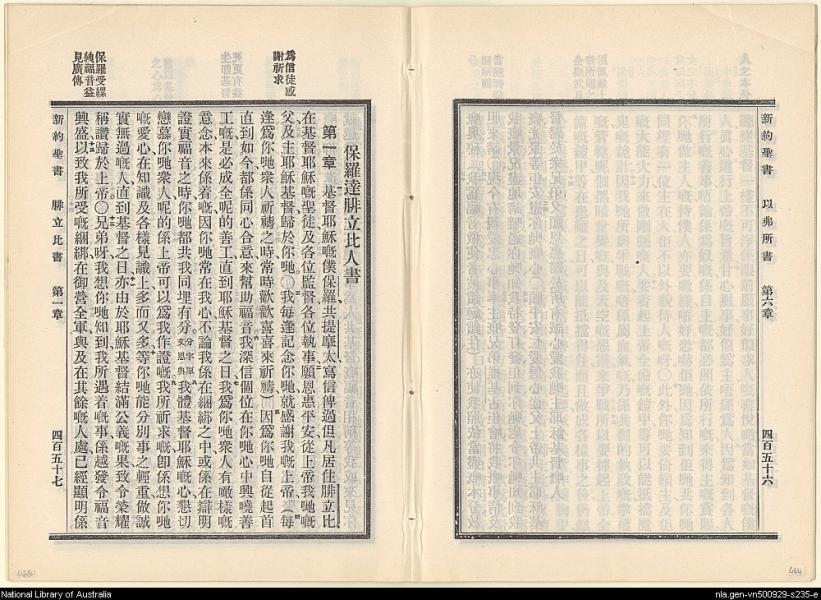 新約聖書 以弗所書 第六章 四百五十六
為信徒感謝祈求
保羅受縲絏福音益見廣傳
保羅達腓立比人書
第一章 基督耶穌嘅僕保羅共提摩太寫信俾過但凡居住腓立比
在基督耶穌嘅聖徒及各位監督各位執事願恩惠平安從上帝我哋嘅
父及主耶穌基督歸於你哋○我每逢記念你哋就感謝我嘅上帝（每
逢為你哋衆人祈禱之時常時歡歡喜喜來祈禱）因為你哋自從起首
直到如今都係同心合意來幫助福音我深信個位在你哋心中興嘵善
工嘅是必成全呢的善工直到耶穌基督之日我為你哋衆人有噉樣嘅
意念本來係着嘅因你哋常在我心不論我係在綑綁之中或係在辯明
證實福音之時你哋都共我同埋有分 我體基督耶穌嘅心懇切
戀慕你哋衆人呢的係上帝可以為我作證嘅我所祈求嘅卽係想你哋
嘅愛心在知識及各樣見識上多而又多等你哋能分別事之輕重做誠
實無過嘅人直到基督之日亦由於耶穌基督結滿公義嘅果致令榮耀
稱讚歸於上帝○兄弟呀我想你哋知到我所遇着嘅事係越發令福音
興盛以致我所受嘅綑綁在御營全軍與及在其餘嘅人處已經顯明係
新約聖書 腓立比書 第一章 四百五十七
465
464
National Library of Australia
nla.gen-vn500929-s235-e